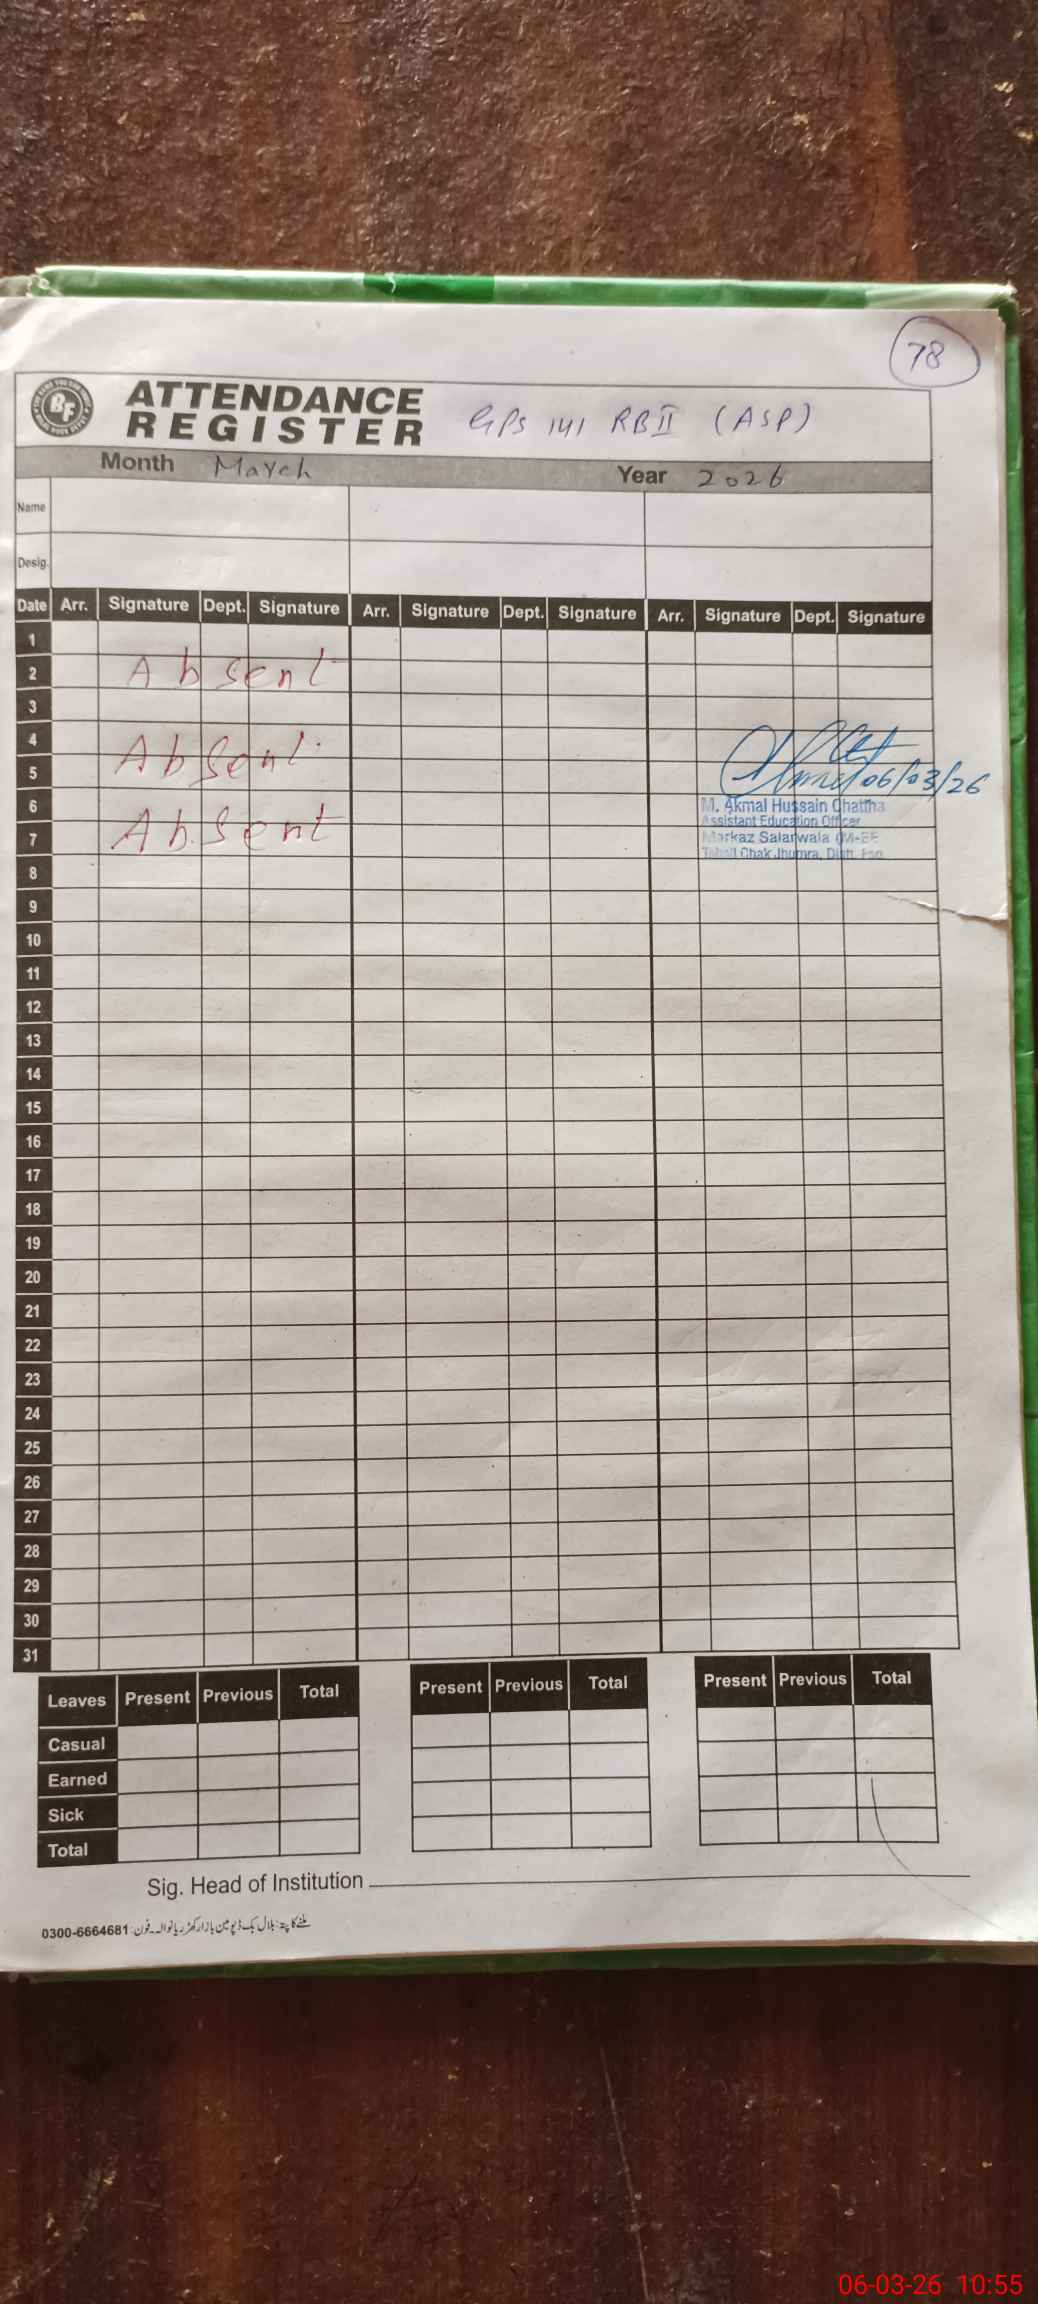 78
BF
ATTENDANCE
REGISTER
GPS 141 RB II (ASP)
Month March Year 2026
Name
Desig.
Date Arr. Signature Dept. Signature Arr. Signature Dept. Signature Arr. Signature Dept. Signature
1
2 Absent
3
4
5 Absent
06/03/26
6 M. Akmal Hussain Chattha
Assistant Education Officer
7 Absent
Markaz Salarwala (M-EE
Tehsil Chak Jhumra, Distt. Fsd
8
9
10
11
12
13
14
15
16
17
18
19
20
21
22
23
24
25
26
27
28
29
30
31
Leaves Present Previous Total Present Previous Total Present Previous Total
Casual
Earned
Sick
Total
Sig. Head of Institution
ملنے کا پتہ: بلال بک ڈپو مین بازار کھڑریانوالہ۔فون: 0300-6664681
06-03-26 10:55